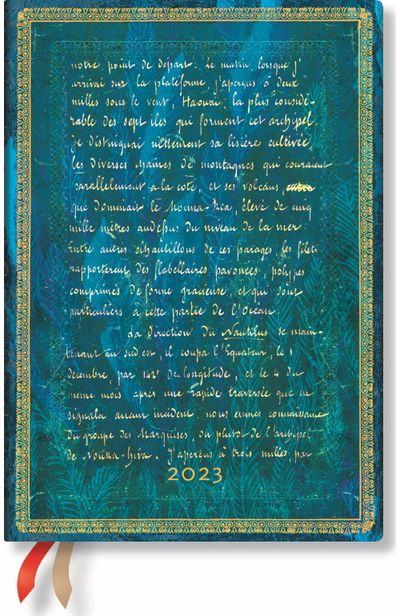 notre point de départ. Le matin, lorsque j'
arrivai sur la plateforme, j'aperçus à deux
milles sous le vent, Haouaï, la plus considé-
rable des sept îles qui forment cet archipel.
Je distinguai nettement sa lisière cultivée,
les diverses chaînes de montagnes qui couraient
parallèlement à la côte, et ses volcans
que dominait le Mouna-Rea, élevé de cinq
mille mètres au dessus du niveau de la mer.
Entre autres échantillons de ces parages, les filets
rapportèrent des flabellaires pavonées, polypes
comprimés de forme gracieuse, et qui sont
particuliers à cette partie de l'Océan.
La direction du Nautilus se main-
tenant au sud est, il coupa l'Equateur, le 1
décembre, par 142° de longitude, et le 4 du
même mois, après une rapide traversée que ne
signala aucun incident, nous eûmes connaissance
du groupe des Marquises, ou plutôt de l'archipel
de Nouka-Hiva. J'aperçus à trois milles, par
2023